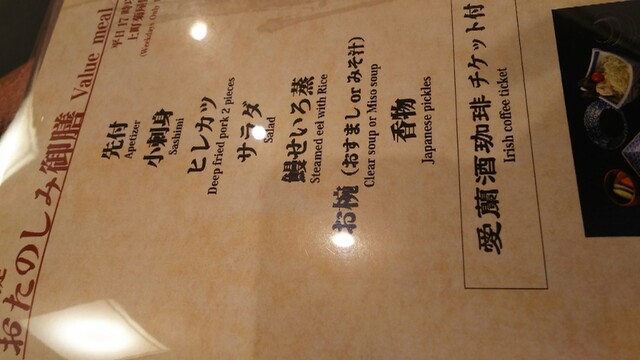 おたのしみ御膳 Value meal
平日17時
上町菊園
(Weekdays Only
先付
Apetizer
小刺身
Sashimi
ヒレカツ
Deep fried pork 2 pieces
サラダ
Salad
鰻せいろ蒸
Steamed eel with Rice
お椀（おすまし or みそ汁）
Clear soup or Miso soup
香物
Japanese pickles
愛蘭酒珈琲 チケット付
Irish coffee ticket